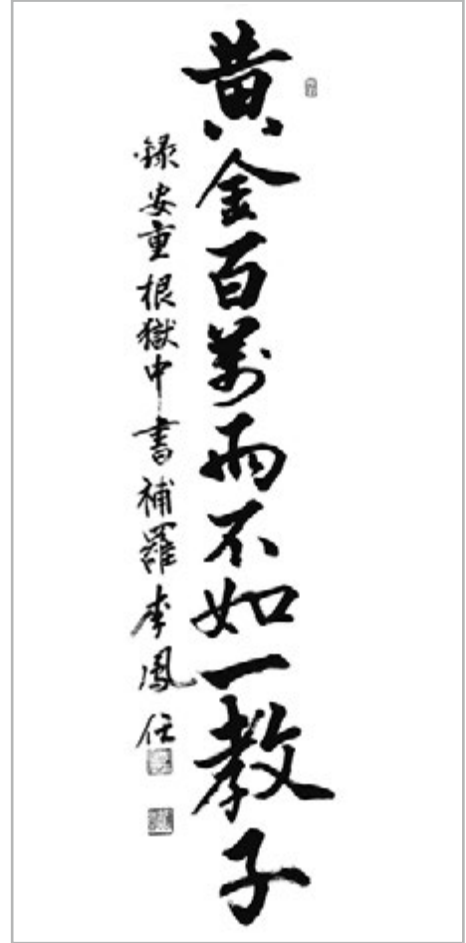 黄金百萬兩不如一教子
錄安重根獄中書補羅李鳳任